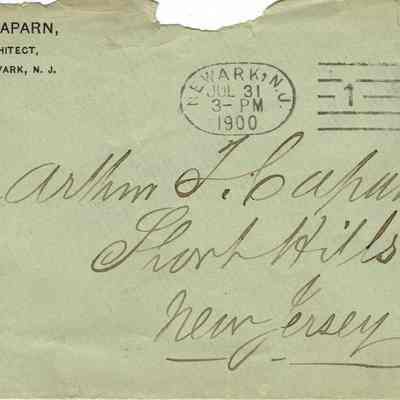 APARN,
HITECT,
WARK, N. J.
NEWARK, N.J.
JUL 31
3-PM
1900
1
Arthur T. Capar
Short Hills
New Jersey